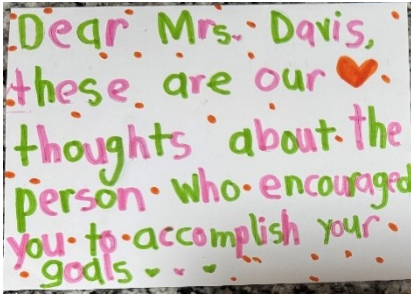 Dear Mrs. Davis,
these are our
thoughts about the
person who encouraged
you to accomplish your
goals